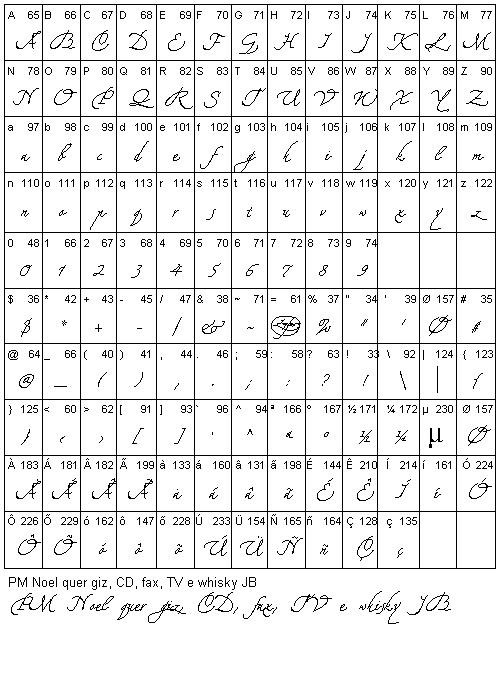 A 65 B 66 C 67 D 68 E 69 F 70 G 71 H 72 I 73 J 74 K 75 L 76 M 77
A B C D E F G H I J K L M
N 78 O 79 P 80 Q 81 R 82 S 83 T 84 U 85 V 86 W 87 X 88 Y 89 Z 90
N O P Q R S T U V W X Y Z
a 97 b 98 c 99 d 100 e 101 f 102 g 103 h 104 i 105 j 106 k 107 l 108 m 109
a b c d e f g h i j k l m
n 110 o 111 p 112 q 113 r 114 s 115 t 116 u 117 v 118 w 119 x 120 y 121 z 122
n o p q r s t u v w x y z
0 48 1 66 2 67 3 68 4 69 5 70 6 71 7 72 8 73 9 74
0 1 2 3 4 5 6 7 8 9
$ 36 * 42 + 43 - 45 / 47 & 38 ~ 71 = 61 % 37 " 34 ' 39 Ø 157 # 35
$ * + - / & ~ % " ' Ø #
@ 64 _ 66 ( 40 ) 41 , 44 . 46 ; 59 : 58 ? 63 ! 33 \ 92 | 124 { 123
@ _ ( ) , . ; : ? ! \ | {
} 125 < 60 > 62 [ 91 ] 93 ` 96 ^ 94 ª 166 º 167 ½ 171 ¼ 172 µ 230 Ø 157
} < > [ ] ` ^ ª º ½ ¼ µ Ø
À 183 Á 181 Â 182 Ã 199 à 133 á 160 â 131 ã 198 É 144 Ê 210 Í 214 í 161 Ó 224
À Á Â Ã à á â ã É Ê Í í Ó
Ô 226 Õ 229 ó 162 ô 147 õ 228 Ú 233 Ü 154 Ñ 165 ñ 164 Ç 128 ç 135
Ô Õ ó ô õ Ú Ü Ñ ñ Ç ç
PM Noel quer giz, CD, fax, TV e whisky JB
PM Noel quer giz, CD, fax, TV e whisky JB